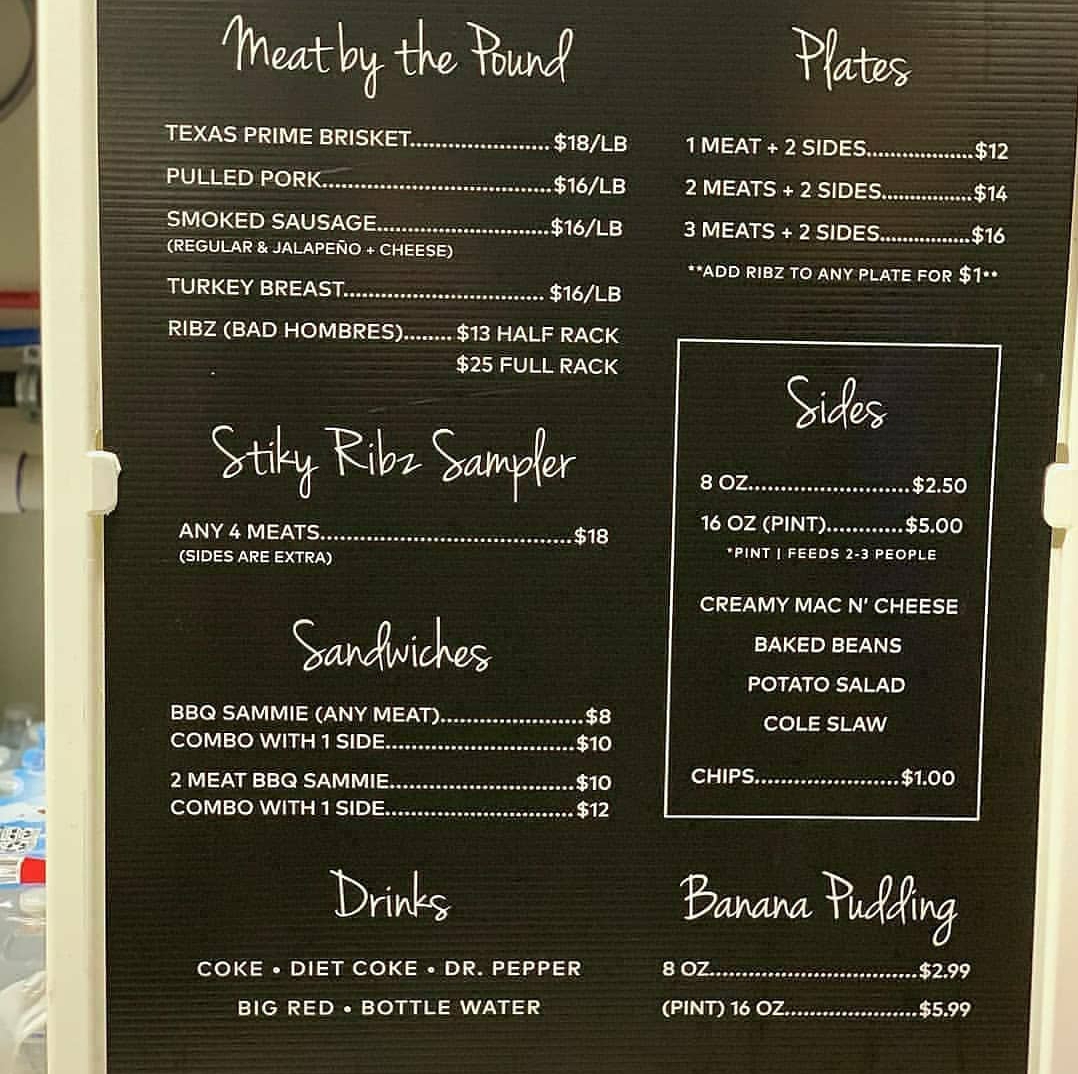 Meat by the Pound
TEXAS PRIME BRISKET......................$18/LB
PULLED PORK....................................$16/LB
SMOKED SAUSAGE...........................$16/LB
(REGULAR & JALAPEÑO + CHEESE)
TURKEY BREAST................................$16/LB
RIBZ (BAD HOMBRES)........$13 HALF RACK
$25 FULL RACK
Stiky Ribz Sampler
ANY 4 MEATS........................................$18
(SIDES ARE EXTRA)
Sandwiches
BBQ SAMMIE (ANY MEAT).......................$8
COMBO WITH 1 SIDE..............................$10
2 MEAT BBQ SAMMIE.............................$10
COMBO WITH 1 SIDE..............................$12
Drinks
COKE • DIET COKE • DR. PEPPER
BIG RED • BOTTLE WATER
Plates
1 MEAT + 2 SIDES..................$12
2 MEATS + 2 SIDES...............$14
3 MEATS + 2 SIDES...............$16
**ADD RIBZ TO ANY PLATE FOR $1**
Sides
8 OZ..........................$2.50
16 OZ (PINT)............$5.00
*PINT | FEEDS 2-3 PEOPLE
CREAMY MAC N' CHEESE
BAKED BEANS
POTATO SALAD
COLE SLAW
CHIPS.......................$1.00
Banana Pudding
8 OZ..................................$2.99
(PINT) 16 OZ.....................$5.99